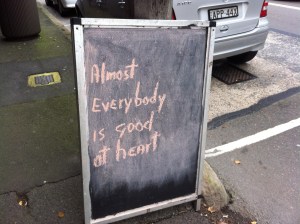 APP·443
Almost
Everybody
is good
at heart